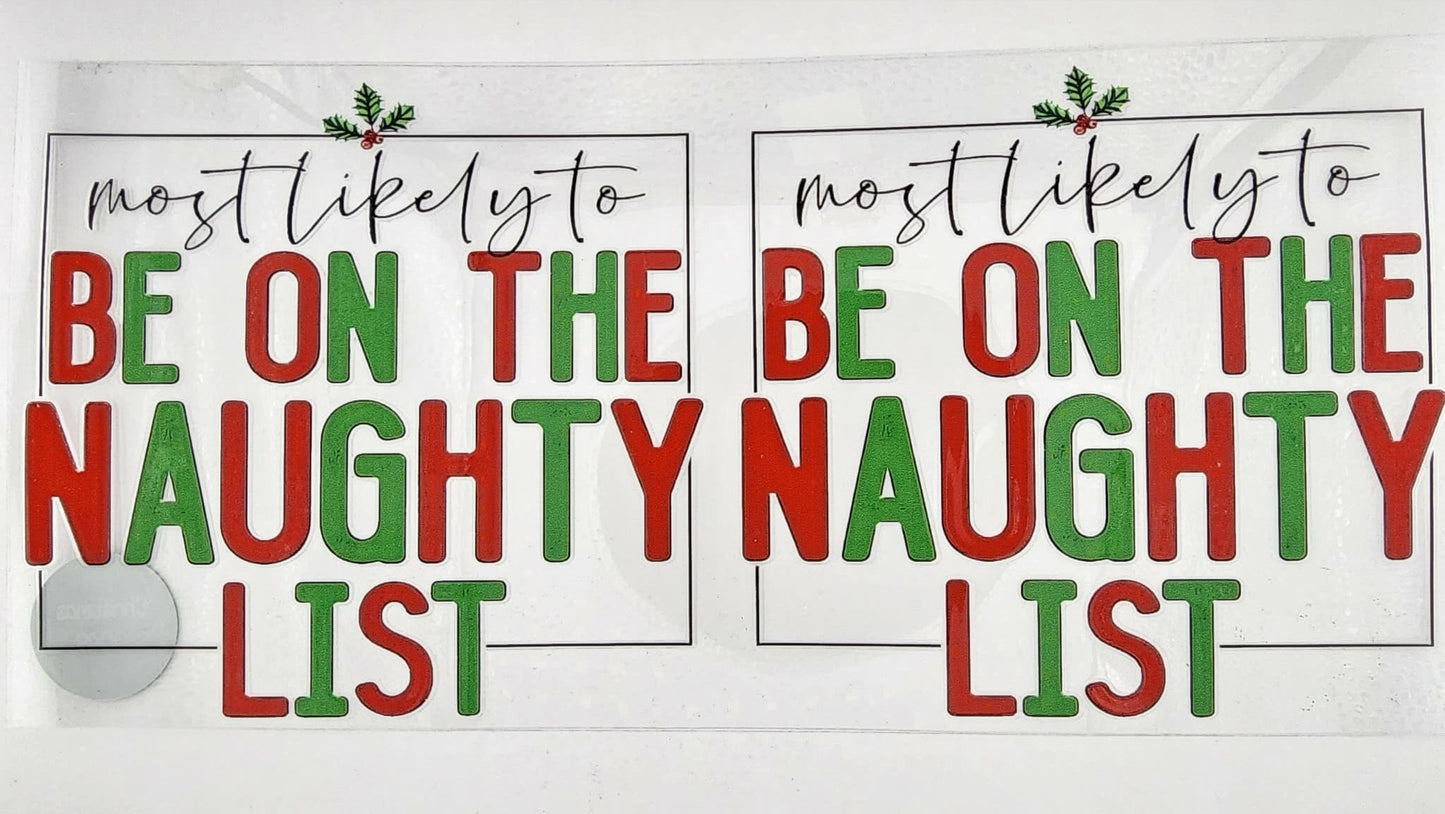 most likely to
BE ON THE
NAUGHTY
LIST
most likely to
BE ON THE
NAUGHTY
LIST